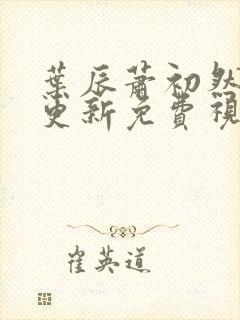 葉辰蕭初然
更新免費視
崔英道